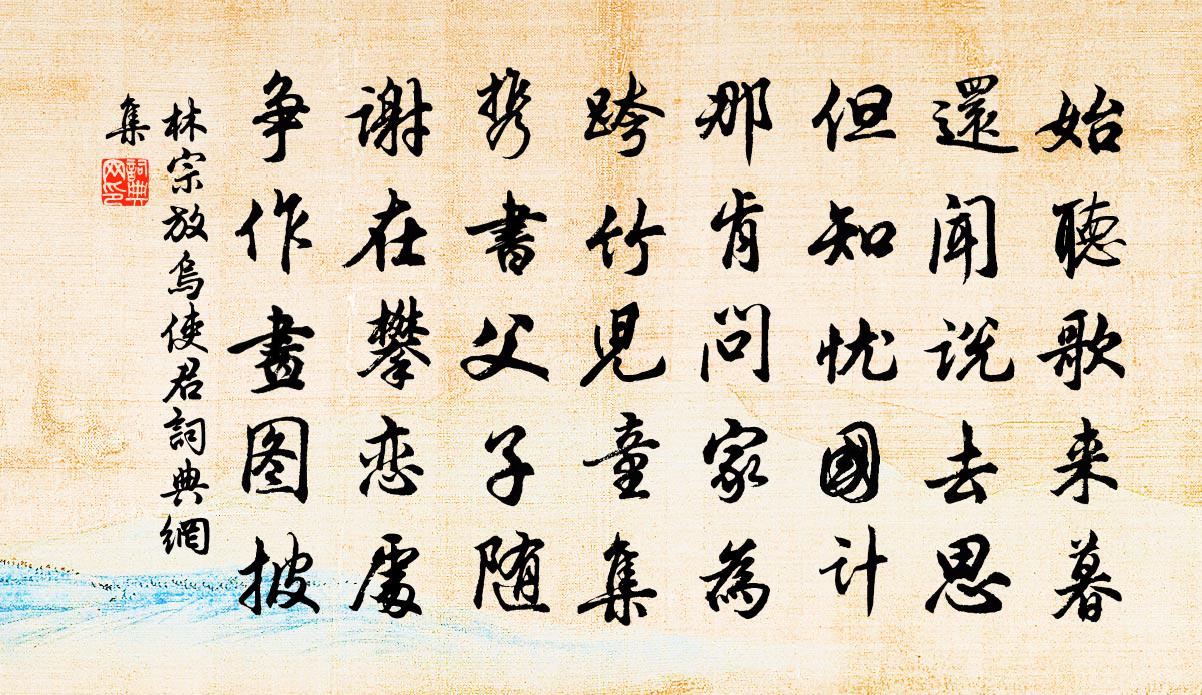 始聽歌来暮
還闻说去思
但知忧國计
那肯问家為
跨竹児童集
携書父子随
谢在攀恋處
争作畫图披
林宗放烏使君詞典網
集
詞典
网印